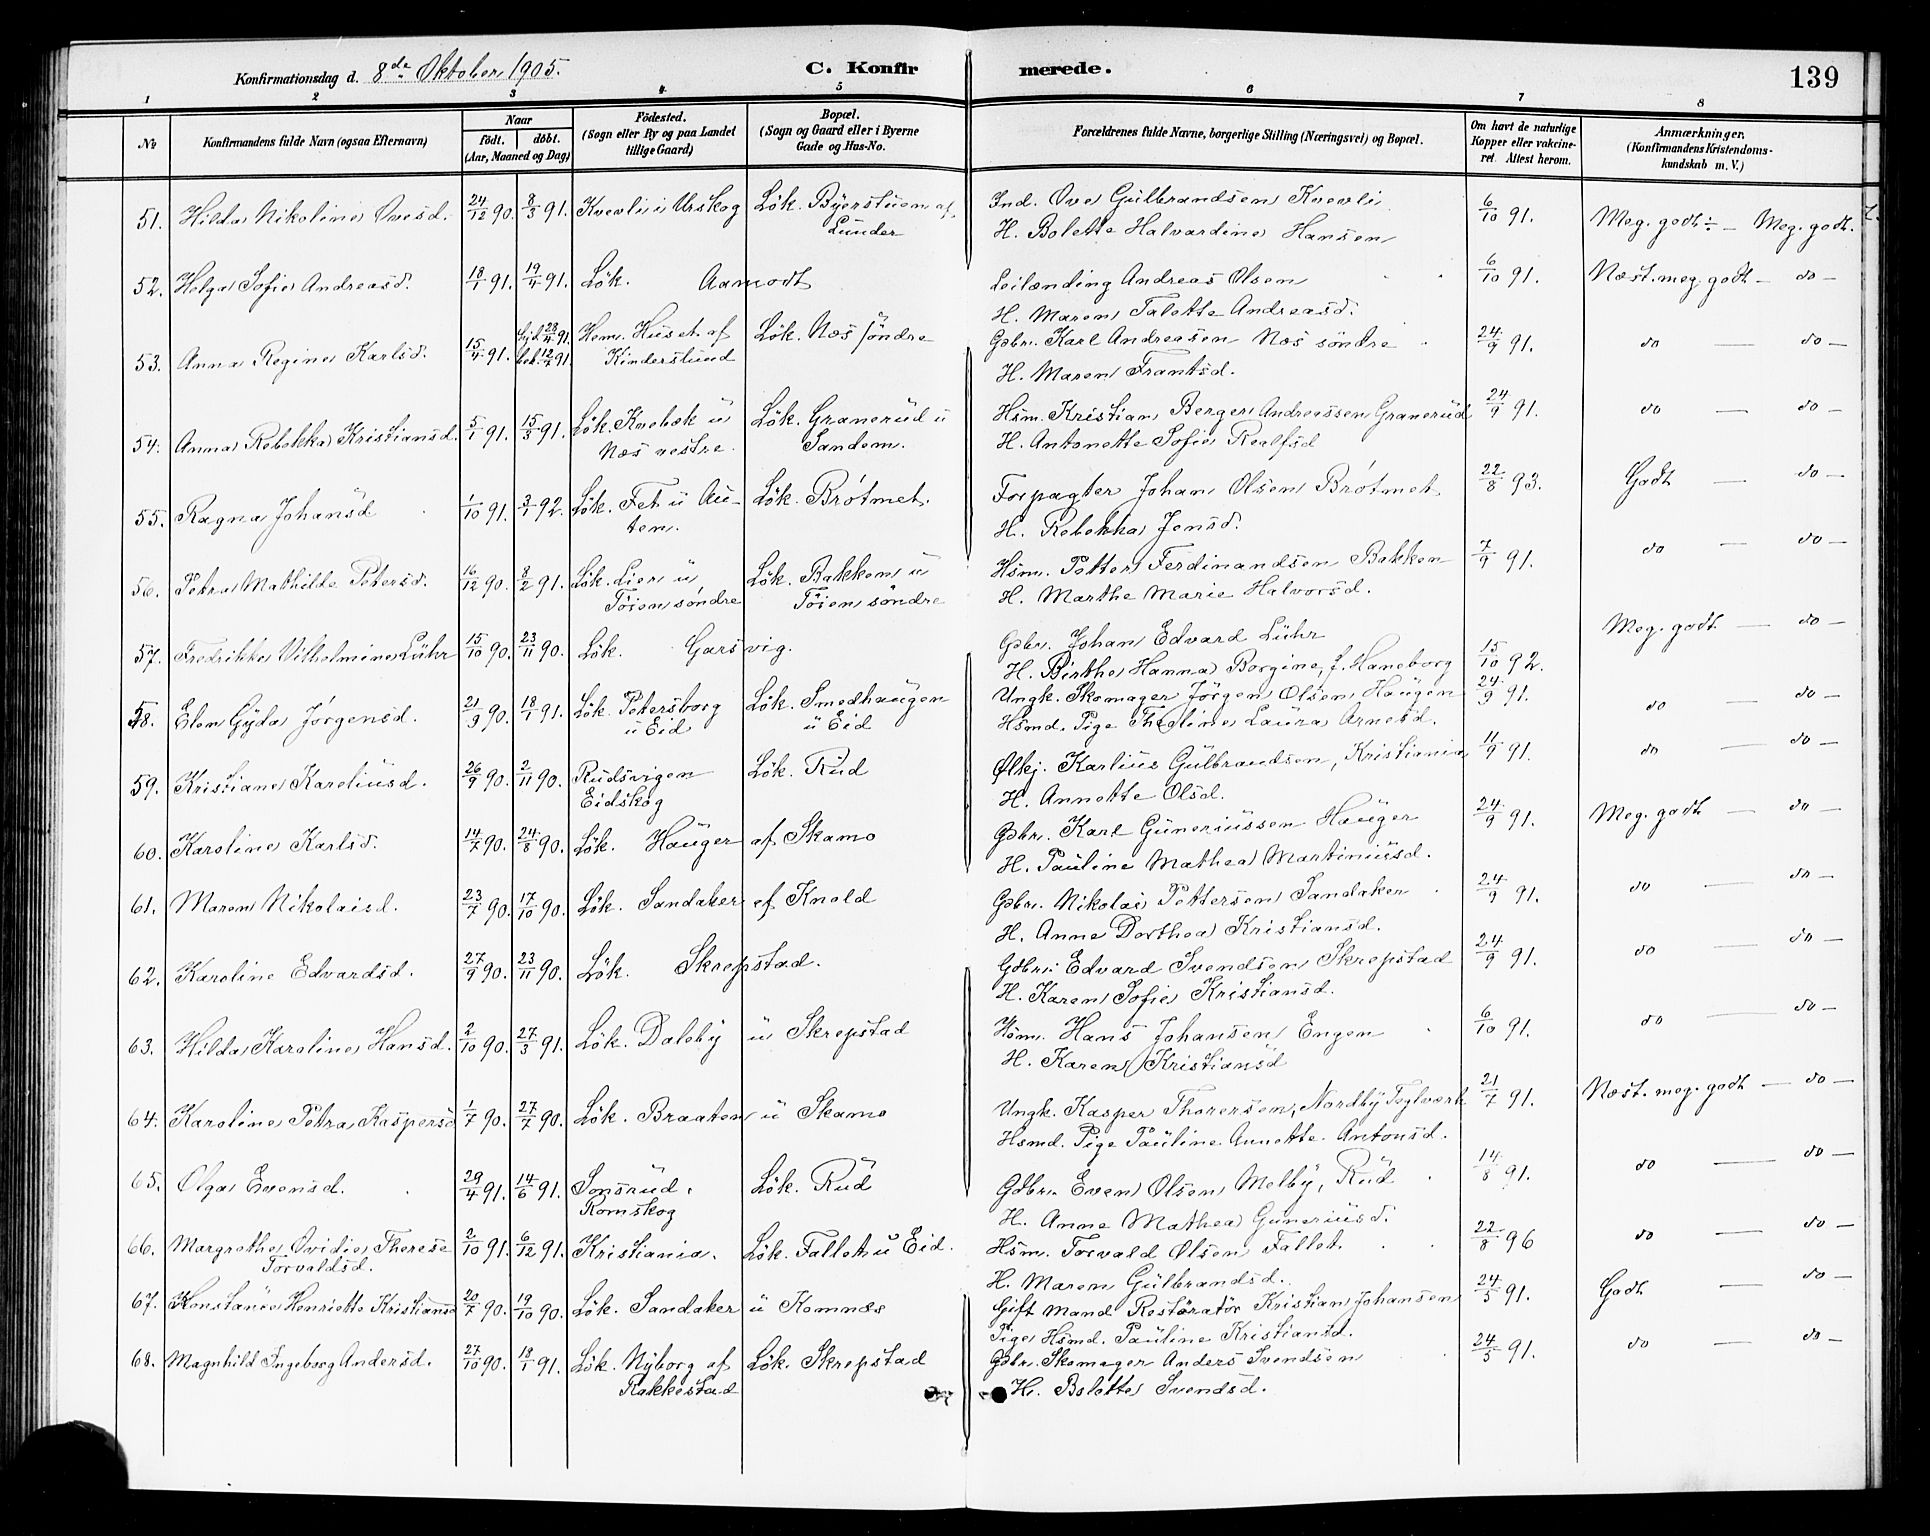 Konfirmationsdag d. 8de Oktober 1905. C. Konfir merede. 139
1 2 3 4 5 6 7 8
№ Konfirmandens fulde Navn (ogsaa Efternavn) Naar födt. döbt. (Aar, Maaned og Dag) Födested. (Sogn eller By og paa Landet tillige Gaard) Bopæl. (Sogn og Gaard eller i Byerne Gade og Hus-No. Forældrenes fulde Navne, borgerlige Stilling (Næringsvei) og Bopæl. Om havt de naturlige Kopper eller vakcineret. Attest herom. Anmærkninger. (Konfirmandens Kristendomskundskab m. V.)
51. Hilda Nikoline Ovesd. 24/12 90. 8/3 91. Kvevli i Urskog Lök. Byerstuen af Ind. Ove Gulbrandsen Kvevli 6/10 91. Meg. godt ÷ — Meg. godt.
Lunder H. Bolette Halvardine Hansen
52. Helga Sofie Andreasd. 18/1 91. 19/4 91. Lök. Aamodt Leilænding Andreas Olsen 6/10 91. Næst. meg. godt — do —
H. Maren Talette Andreasd.
53. Anna Regine Karlsd. 15/4 91. hjd 23/4 91. bek. 12/7 91. Hem. Huset af Lök. Næs söndre Gdbr. Karl Andreasen Næs söndre 24/9 91. do — do —
Kinderstuud H. Maren Frantsd.
54. Anna Rebekka Kristiansd. 5/1 91. 15/3 91. Lök. Kvebæk u Lök. Granerud u Hsm. Kristian Berger Andreassen Granerud 24/9 91. do — do —
Næs vestre. Sandem. H. Antonette Sofie Realfsd
55. Ragna Johansd 1/10 91. 3/1 92. Lök. Fet u Au- Lök. Brötmet. Forpagter Johan Olsen Brötmet 22/8 93. Godt — do —
ten. H. Rebekka Jensd.
56. Petra Mathilde Petersd. 16/12 90. 8/2 91. Lök. Lier u Lök. Bakken u Hsm. Petter Ferdinandsen Bakken 7/9 91. do — do —
Töien söndre Töien söndre H. Marthe Marie Halvorsd.
57. Fredrikke Vilhelmine Lühr 15/10 90. 23/11 90. Lök. Garsvig. Gdbr. Johan Edvard Lühr 15/10 92. Meg. godt — do —
H. Birthe Hanna Borgine, f. Haneborg
58. Elen Gyda Jörgensd. 21/9 90. 18/1 91. Lök. Petersborg Lök. Smedhaugen Ungk. Skomager Jörgen Olsen Haugen 24/9 91. do — do —
u Eid u Eid Hsmd. Pige Theoline Laura Arnesd.
59. Kristiane Kareliusd. 26/9 90. 2/11 90. Rudsvigen Lök. Rud Ölkj. Karlius Gulbrandsen, Kristiania 11/9 91. do — do —
Eidskog H. Annette Olsd.
60. Karoline Karlsd. 14/7 90. 24/8 90. Lök. Hauger af Skamo Gdbr. Karl Guneriussen Hauger 24/9 91. Meg. godt — do —
H. Pauline Mathea Martiniusd.
61. Maren Nikolaisd. 23/7 90. 17/10 90. Lök. Sandaker af Knold Gdbr. Nikolai Pettersen Sandaker 24/9 91. do — do —
H. Anne Dorthea Kristiansd.
62. Karoline Edvardsd. 27/9 90. 23/11 90. Lök. Skrepstad. Gdbr. Edvard Svendsen Skrepstad 24/9 91. do — do —
H. Karen Sofie Kristiansd.
63. Hilda Karoline Hansd. 2/10 90. 27/3 91. Lök. Daleby u Skrepstad Hsm. Hans Johansen Engen 6/10 91. do — do —
H. Karen Kristiansd
64. Karoline Petra Kaspersd 1/7 90. 27/7 90. Lök. Braaten u Skamo Ungk. Kasper Thorersen, Nordby Teglværk 21/7 91. Næst. meg. godt — do —
Hsmd. Pige Pauline Annette Antonsd.
65. Olga Evensd. 29/4 91. 14/6 91. Smsrud. Lök. Rud Gdbr. Even Olsen Melby, Rud 14/8 91. do — do —
Römskog H. Anne Mathea Guneriusd.
66. Margrethe Ovidie Therese 2/10 91. 6/12 91. Kristiania. Lök. Fallet u Eid. Hsm. Torvald Olsen Fallet. 22/8 96 do — do —
Torvaldsd. H. Maren Gulbrandsd.
67. Konstance Henriette Kristiansd 20/7 90. 19/10 90. Lök. Sandaker u Komnæs Gift Mand Restöratör Kristian Johansen 24/5 91. Godt — do —
Pige Hsmd. Pauline Kristiansd.
68. Magnhild Ingeborg Andersd. 27/10 90. 18/1 91. Lök. Nyborg af Lök. Skrepstad Gdbr. Skomager Anders Svendsen 24/5 91. do — do —
Rakkestad H. Bolette Svendsd.